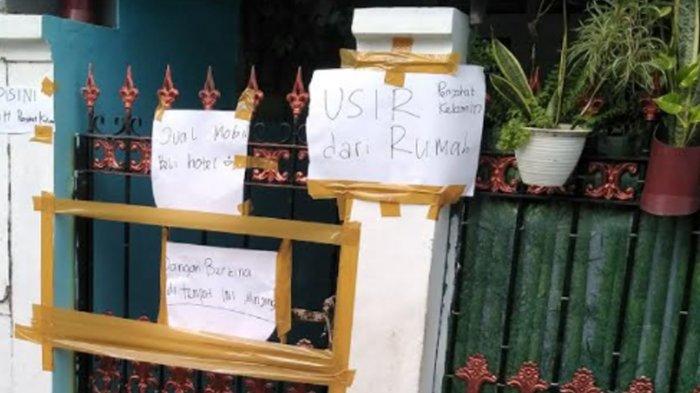 DISINI
Jual Mobil
Beli hotel
USIR
dari Rumah
Penjahat
Kelamin!!
Jangan Berzina
di tempat ini